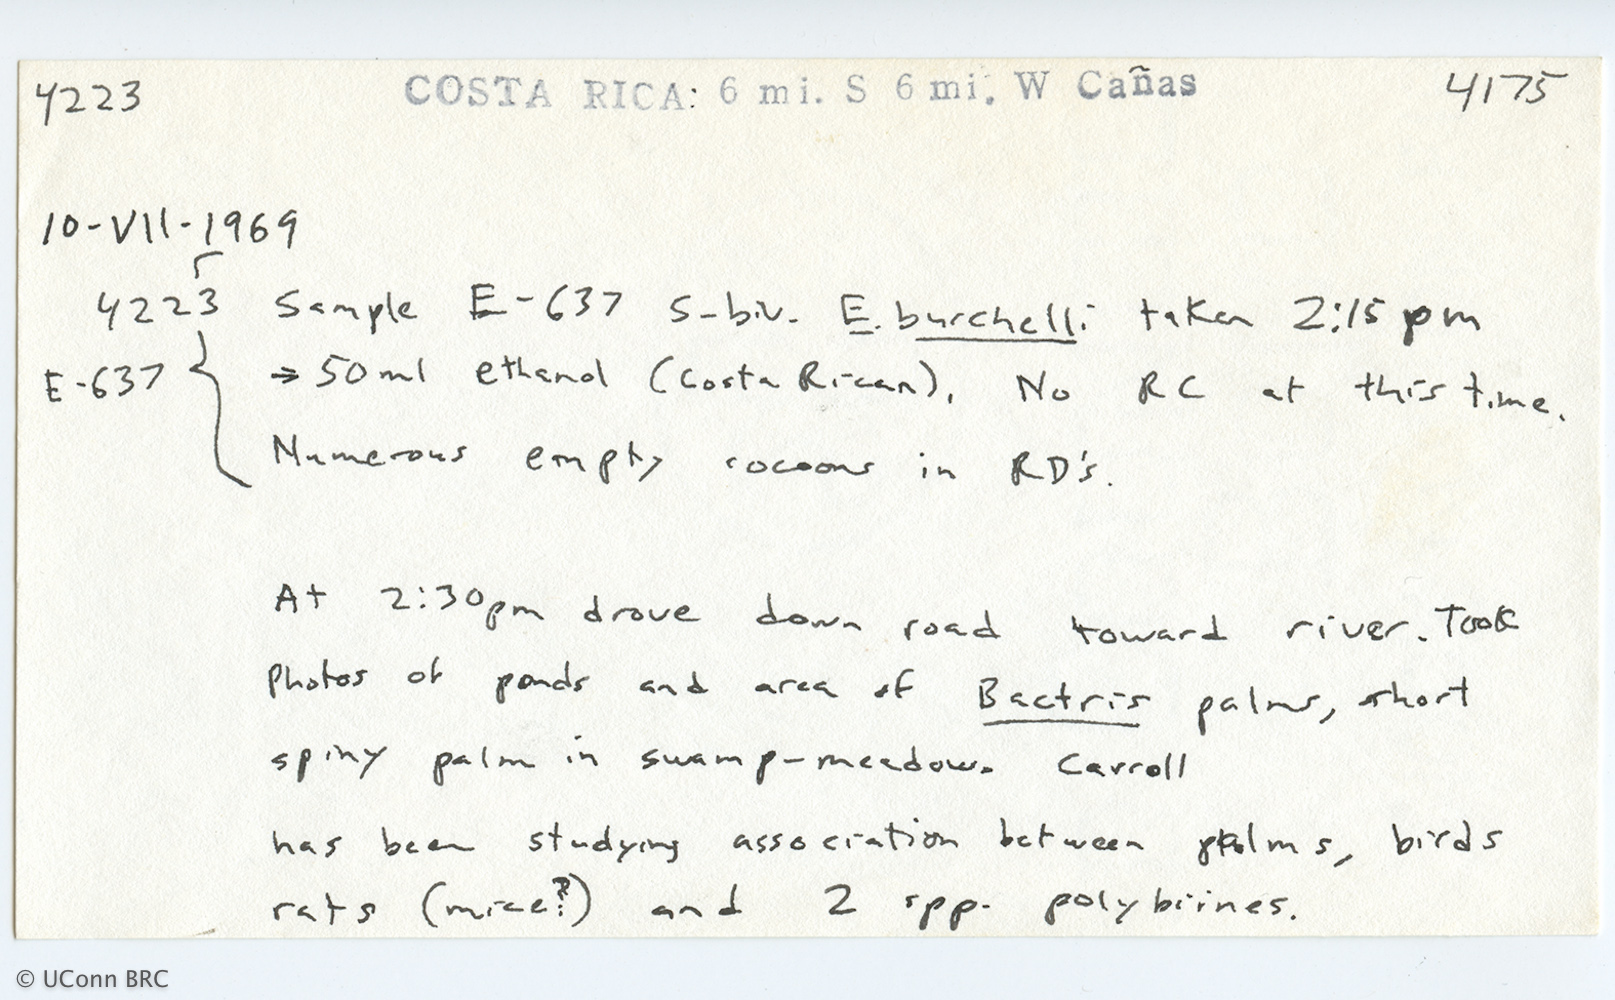 4223 COSTA RICA: 6 mi. S 6 mi. W Cañas 4175
10-VII-1969
4223 Sample E-637 s-biv. E. burchelli taken 2:15 pm
E-637 → 50ml ethanol (Costa Rican). No RC at this time.
Numerous empty cocoons in RD's.
At 2:30pm drove down road toward river. Took
Photos of ponds and area of Bactris palms, short
spiny palm in swamp-meadow. Carroll
has been studying association between palms, birds
rats (mice?) and 2 spp. polybiines.
© UConn BRC